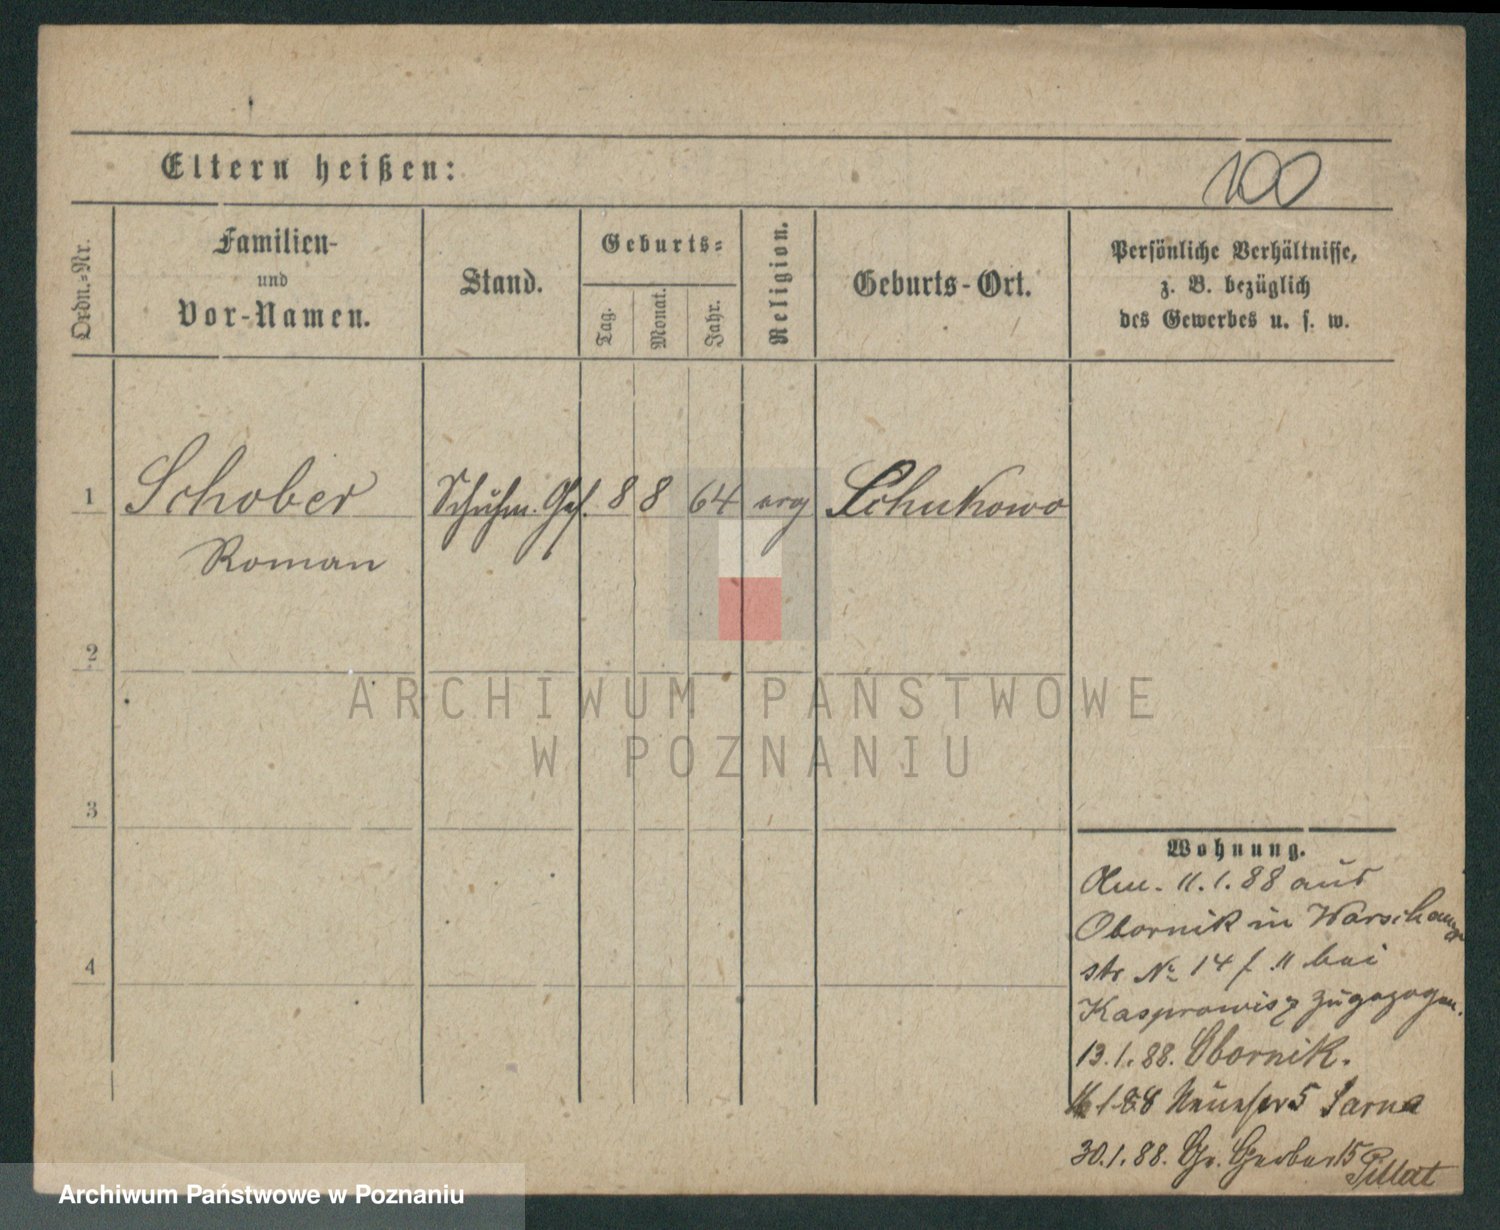 Eltern heißen:
100
Ordn.-Nr.
Familien-
und
Vor-Namen.
Stand.
Geburts-
Tag.
Monat.
Jahr.
Religion.
Geburts-Ort.
Persönliche Verhältnisse,
z. B. bezüglich
des Gewerbes u. s. w.
1 Schober Schuhm. Ges. 8 8 64 evg Schukowo
Roman
2
3
4
ARCHIWUM PAŃSTWOWE
W POZNANIU
Wohnung.
11.1.88 aus
Obornik in
str № 14 bei
zugezogen.
13.1.88. Obornik.
1.88 5 Sarna
30.1.88. Gr. Gerber 15 Pillat
Archiwum Państwowe w Poznaniu